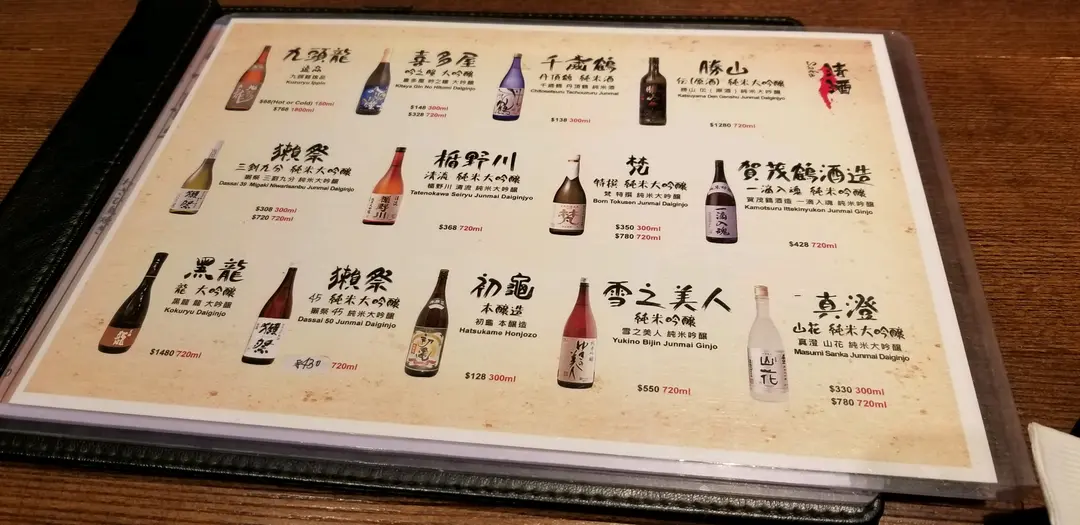 清酒
Sake
九頭龍
逸品
九頭龍逸品
Kuzuryu Ippin
$68(Hot or Cold) 150ml
$768 1800ml
喜多屋
吟之瞳 大吟釀
喜多屋 吟之瞳 大吟釀
Kitaya Gin No Hitomi Daiginjo
$148 300ml
$328 720ml
千歲鶴
丹頂鶴 純米酒
千歲鶴 丹頂鶴 純米酒
Chitosetsuru Tanchouzuru Junmai
$138 300ml
勝山
伝(原酒) 純米大吟釀
勝山 伝(原酒)純米大吟釀
Katsuyama Den Genshu Junmai Daiginjyo
$1280 720ml
獺祭
三割九分 純米大吟釀
獺祭 三割九分 純米大吟釀
Dassai 39 Migaki Niwarisanbu Junmai Daiginjo
$308 300ml
$720 720ml
楯野川
清流 純米大吟釀
楯野川 清流 純米大吟釀
Tatenokawa Seiryu Junmai Daiginjyo
$368 720ml
梵
特撰 純米大吟釀
梵 特撰 純米大吟釀
Born Tokusen Junmai Daiginjo
$350 300ml
$780 720ml
賀茂鶴酒造
一滴入魂 純米吟釀
賀茂鶴酒造 一滴入魂 純米吟釀
Kamotsuru Ittekinyukon Junmai Ginjo
$428 720ml
黑龍
龍 大吟釀
黑龍 龍 大吟釀
Kokuryu Daiginjo
$1480 720ml
獺祭
45 純米大吟釀
獺祭 45 純米大吟釀
Dassai 50 Junmai Daiginjo
$430 720ml
初龜
本釀造
初龜 本釀造
Hatsukame Honjozo
$128 300ml
雪之美人
純米吟釀
雪之美人 純米吟釀
Yukino Bijin Junmai Ginjo
$550 720ml
真澄
山花 純米大吟釀
真澄 山花 純米大吟釀
Masumi Sanka Junmai Daiginjo
$330 300ml
$780 720ml